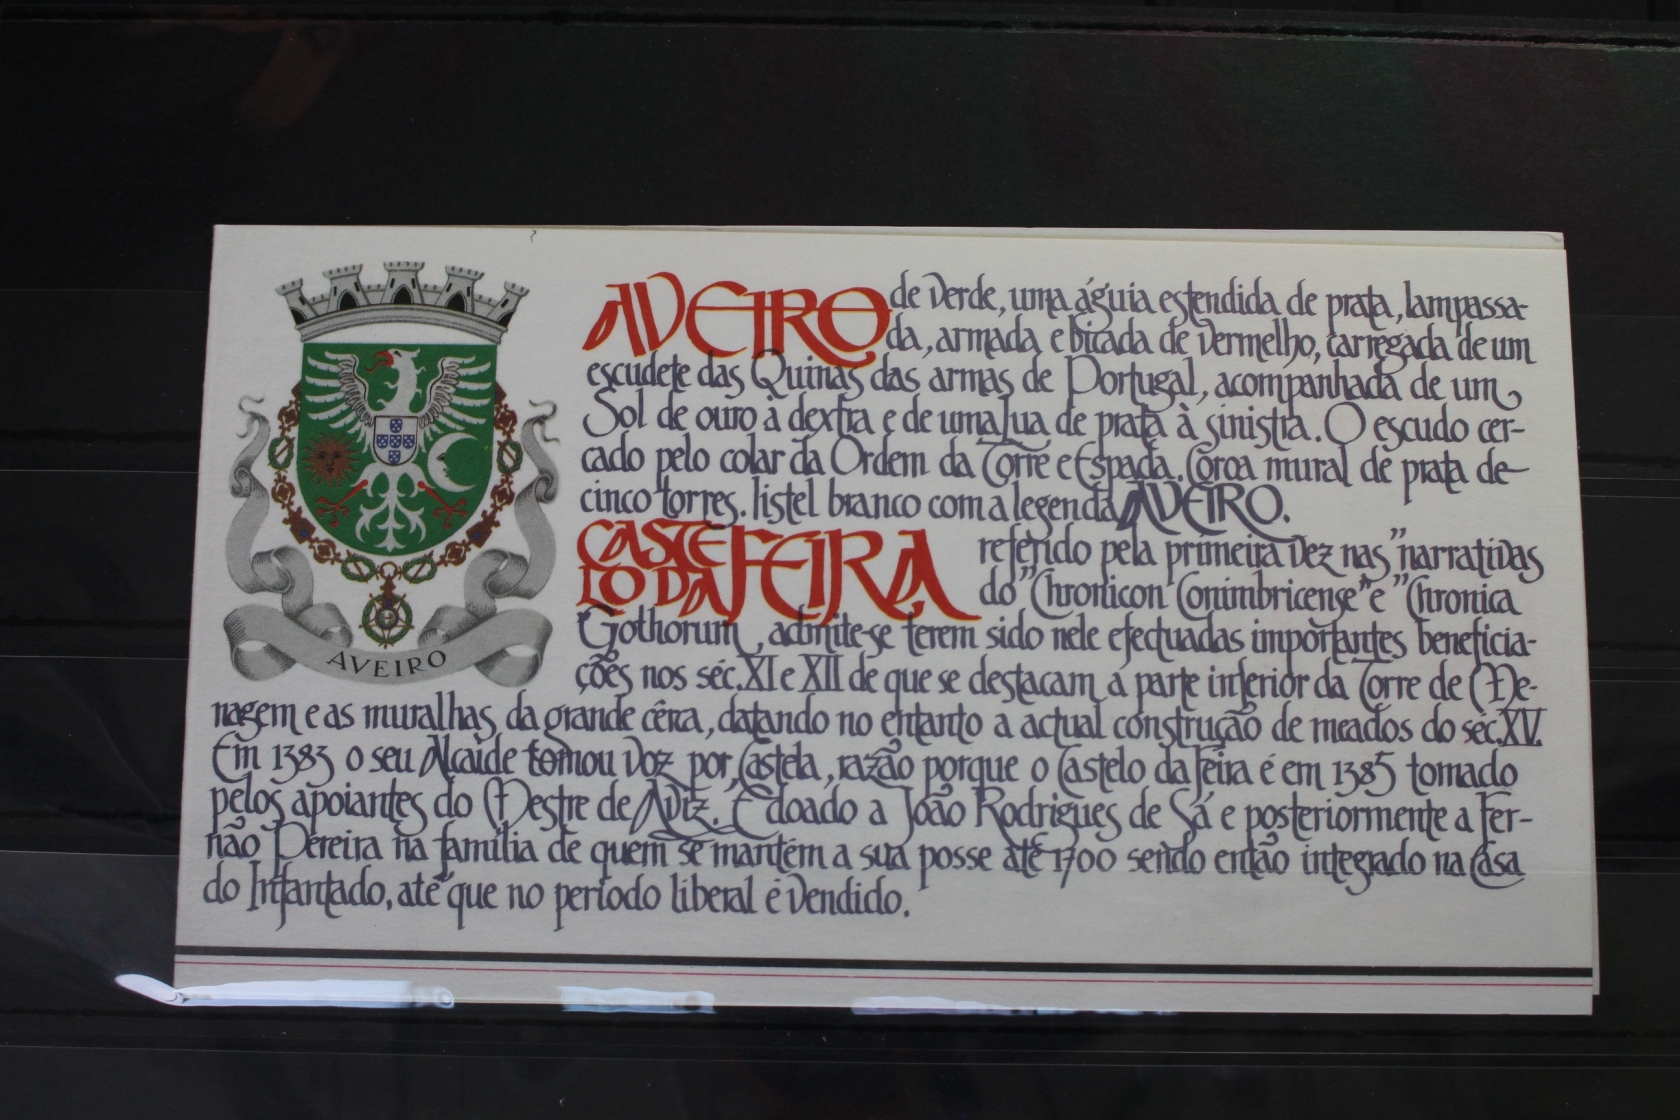 AVEIRO
AVEIRO de verde, uma águia estendida de prata, lampassa-
da, armada e bicada de vermelho, carregada de um
escudete das Quinas das armas de Portugal, acompanhada de um
Sol de ouro à dextra e de uma Lua de prata à sinistra. O escudo cer-
cado pelo colar da Ordem da Torre e Espada. Coroa mural de prata de
cinco torres. listel branco com a legenda AVEIRO.
CASTELO DA FEIRA referido pela primeira vez nas "narrativas
do "Chronicon Conimbricense" e "Chronica
Gothorum, admite-se terem sido nele efectuadas importantes beneficia-
ções nos séc. XI e XII de que se destacam a parte inferior da Torre de Me-
nagem e as muralhas da grande cêrca, datando no entanto a actual construção de meados do séc. XV.
Em 1383 o seu Alcaide tomou voz por Castela, razão porque o Castelo da Feira é em 1385 tomado
pelos apoiantes do Mestre de Aviz. É doado a João Rodrigues de Sá e posteriormente a Fer-
não Pereira na família de quem se mantém a sua posse até 1700 sendo então integrado na Casa
do Infantado, até que no período liberal é vendido.